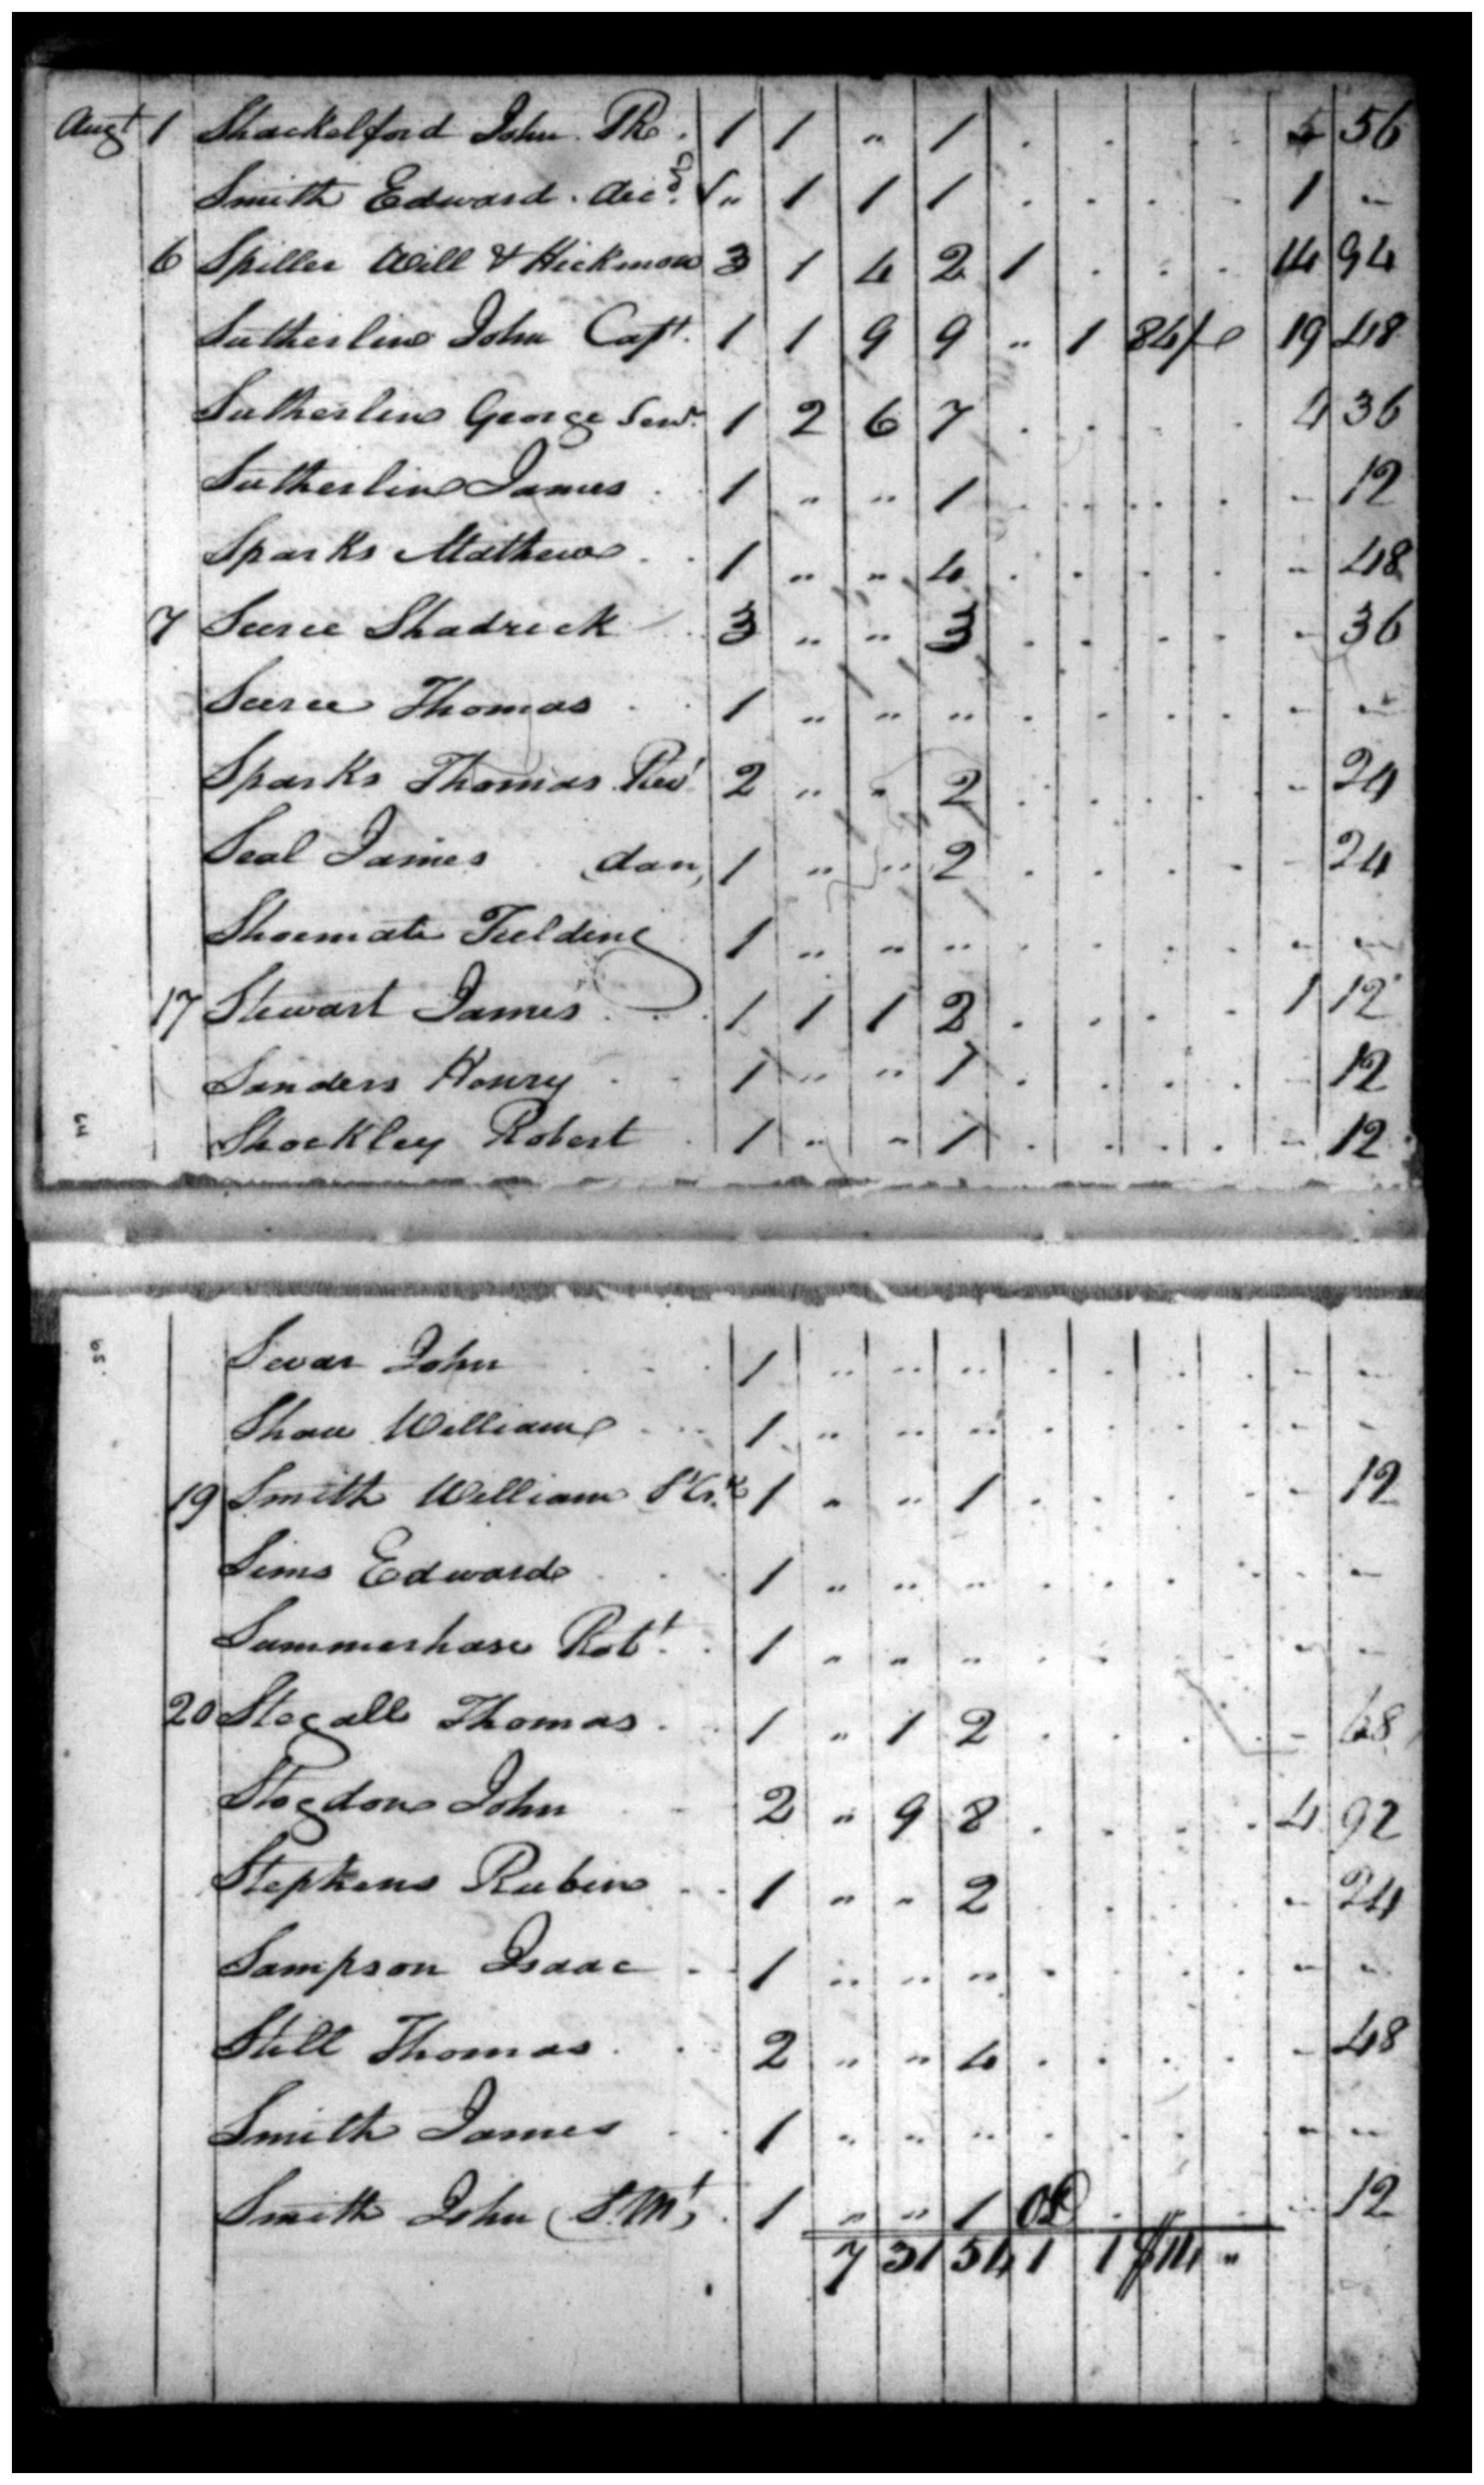 Augt 1 Shackelford John Ths. 1 1 " 1 . . . . 5 56
Smith Edward decd. " 1 1 1 . . . . 1 -
6 Spiller Will & Hickmon 3 1 4 2 1 . . . 14 94
Sutherline John Capt. 1 1 9 9 " 1 84/ 19 48
Sutherline George Senr. 1 2 6 7 . . . . 4 36
Sutherline James . 1 " " 1 . . . . - 12
Sparks Mathew . . 1 " " 4 . . . . - 48
7 Seerce Shadrick . 3 " " 3 . . . . - 36
Seerce Thomas . . 1 " " " . . . . - -
Sparks Thomas Revd. 2 " " 2 . . . . - 24
Seal James (dan) 1 " " 2 . . . . - 24
Shoemate Fielding 1 " " " . . . . - -
17 Stewart James . . . 1 1 1 2 . . . . 1 12
Sanders Henry . . 1 " " 1 . . . . - 12
64 Shockley Robert . 1 " " 1 . . . . - 12
65 Sevar John . . . 1 " " " . . . . - -
Shaw William . . . 1 " " " . . . . - -
19 Smith William 1 " " 1 . . . . - 12
Sims Edward . . 1 " " " . . . . . -
Summerhase Robt. . 1 " " " . . - -
20 Stegall Thomas . . 1 " 1 2 . . . . - 68
Stogdon John . - 2 " 9 8 . . . . 4 92
Stephens Rubin . . 1 " " 2 . . . - 24
Sampson Isaac - . 1 " " " . . . . - -
Still Thomas . . . 2 " " 4 . . . . - 48
Smith James . . 1 " " " . . . - -
Smith John (S.Mt) . 1 " " 1 . . . - 12
7 31 54 1 1 84 "